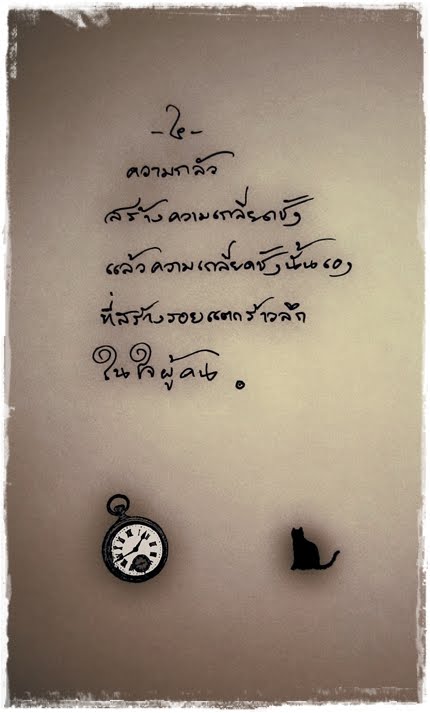 ความกลัว
สร้างความเกลียดชัง
แล้วความเกลียดชังนั้นเอง
ที่สร้างรอยแตกร้าวลึก
ในใจผู้คน